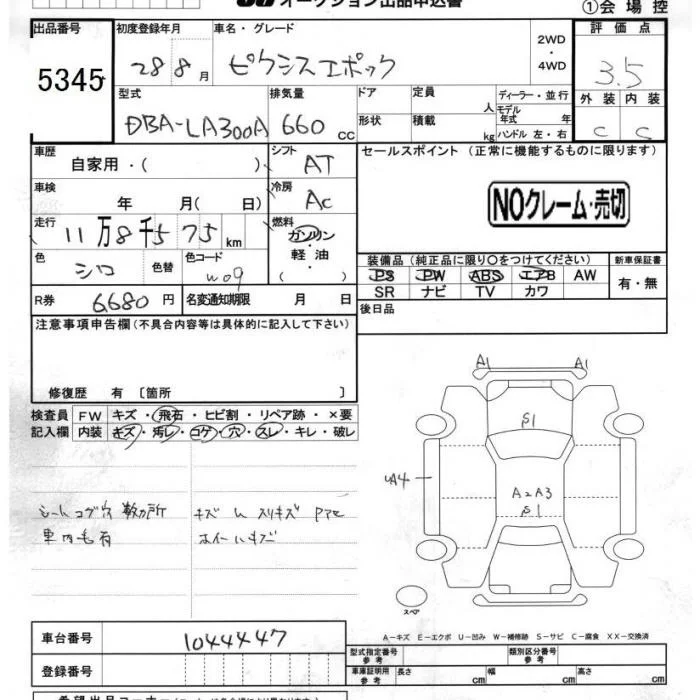 オークション出品申込書
①会場控
出品番号 初度登録年月 車名・グレード 2WD・4WD 評価点
5345 28 8月 ピクシスエポック 3.5
型式 排気量 ドア 定員 人 ディーラー・並行 外装 内装
DBA-LA300A 660 cc 形状 積載 kg モデル年式 年 C C
ハンドル 左・右
車歴 自家用・( ) シフト AT セールスポイント (正常に機能するものに限ります)
車検 年 月( 日) 冷房 AC NOクレーム・売切
走行 11万8千575km 燃料 ガソリン・軽油・( )
色 シロ 色替 色コード W09 装備品 (純正品に限り○をつけてください) 新車保証書
PS PW ABS エアB AW 有・無
SR ナビ TV カワ
R券 6680円 名変通知期限 月 日 後日品
注意事項申告欄 (不具合内容等は具体的に記入して下さい)
修復歴 有 〔箇所 〕
検査員記入欄 FW キズ・飛石・ヒビ割・リペア跡・×要
内装 キズ・汚レ・コゲ・穴・スレ・キレ・破レ
シートコゲ穴 数カ所
車内毛有
ホイールキズ
A1 A1
S1
A2A3
S1
スペア
A-キズ E-エクボ U-凹み W-補修跡 S-サビ C-腐食 XX-交換済
車台番号 1044447
登録番号
型式指定番号 参考 類別区分番号 参考
車庫証明用 参考 長さ cm 幅 cm 高さ cm